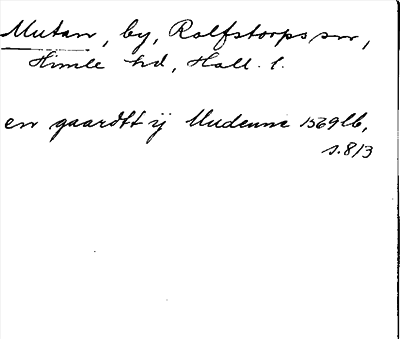 Mutan, by, Rolfstorps sn,
Himle hd, Hall. l.
en gaardtt ij Mudenne 1569 lb,
s. 8/3